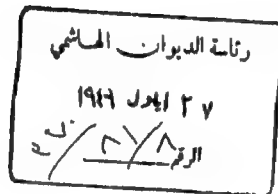 رئاسة الديوان الهاشمي
٢٧ ايلول ١٩٤٩
الرقم ٨/٢١/